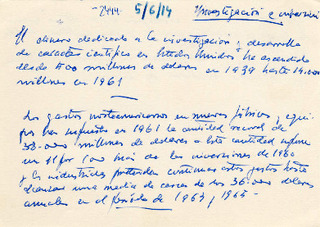 2414. 5/6/14 Investigación e inversión
El dinero dedicado a la investigación y desarrollo
de carácter científico en Estados Unidos ha ascendido
desde 500 millones de dólares en 1939 hasta 14.000
millones en 1961
Los gastos norteamericanos en nuevas fábricas y equi-
pos han supuesto en 1961 la cantidad record de
millones de dólares esta cantidad supone
un 11 por 100 más de las inversiones de 1960
y las industrias pretenden continuar estos gastos hasta
alcanzar una media de cerca de los 36.000 dólares
anuales en el Periodo de 1963, 1965 -